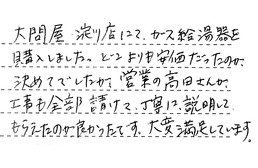 大問屋 淀川店にて、ガス給湯器を
購入しました。どこよりも安価だったのが
決めてでしたが、営業の高田さんが
工事も全部請けて、丁寧に説明して
もらえたのが良かったです。大変満足しています。